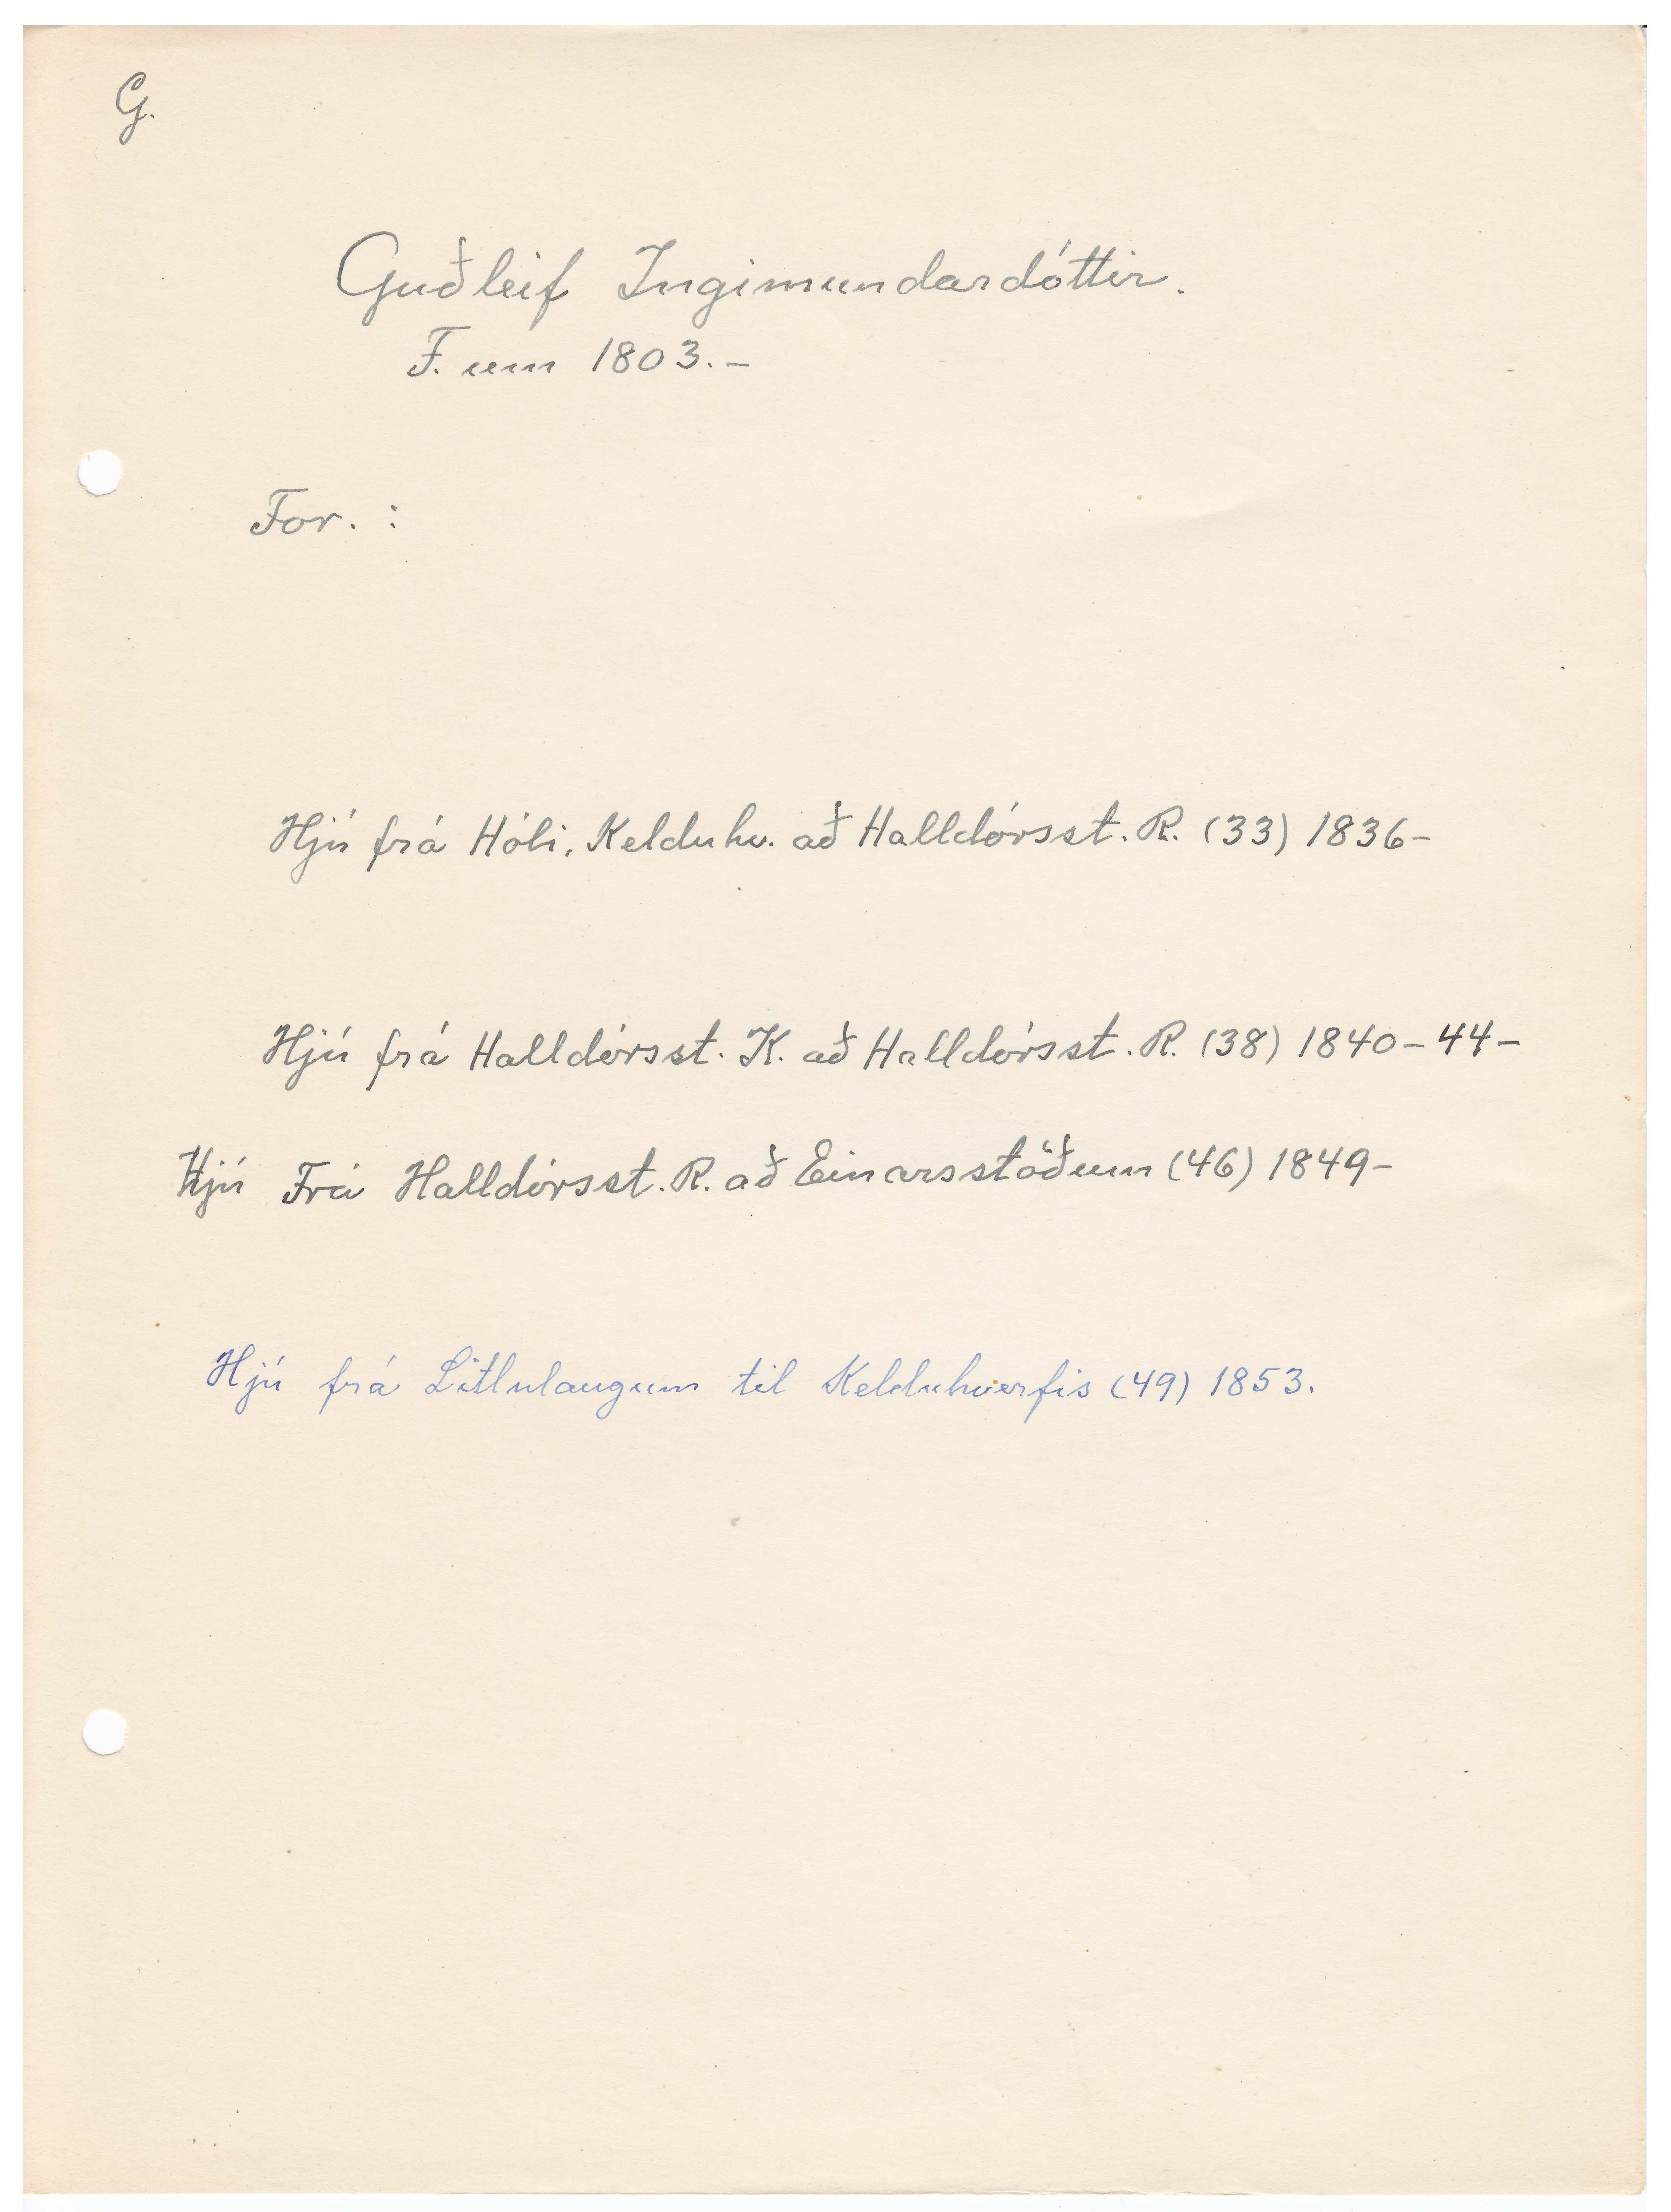 G.
Guðleif Ingimundardóttir.
F. um 1803.-
For. :
Hjú frá Hóli, Kelduhv. að Halldórsst. R. (33) 1836-
Hjú frá Halldórsst. K. að Halldórsst. R. (38) 1840-44-
Hjú Frá Halldórsst. R. að Einarsstöðum (46) 1849-
Hjú frá Litlulaugum til Kelduhverfis (49) 1853.